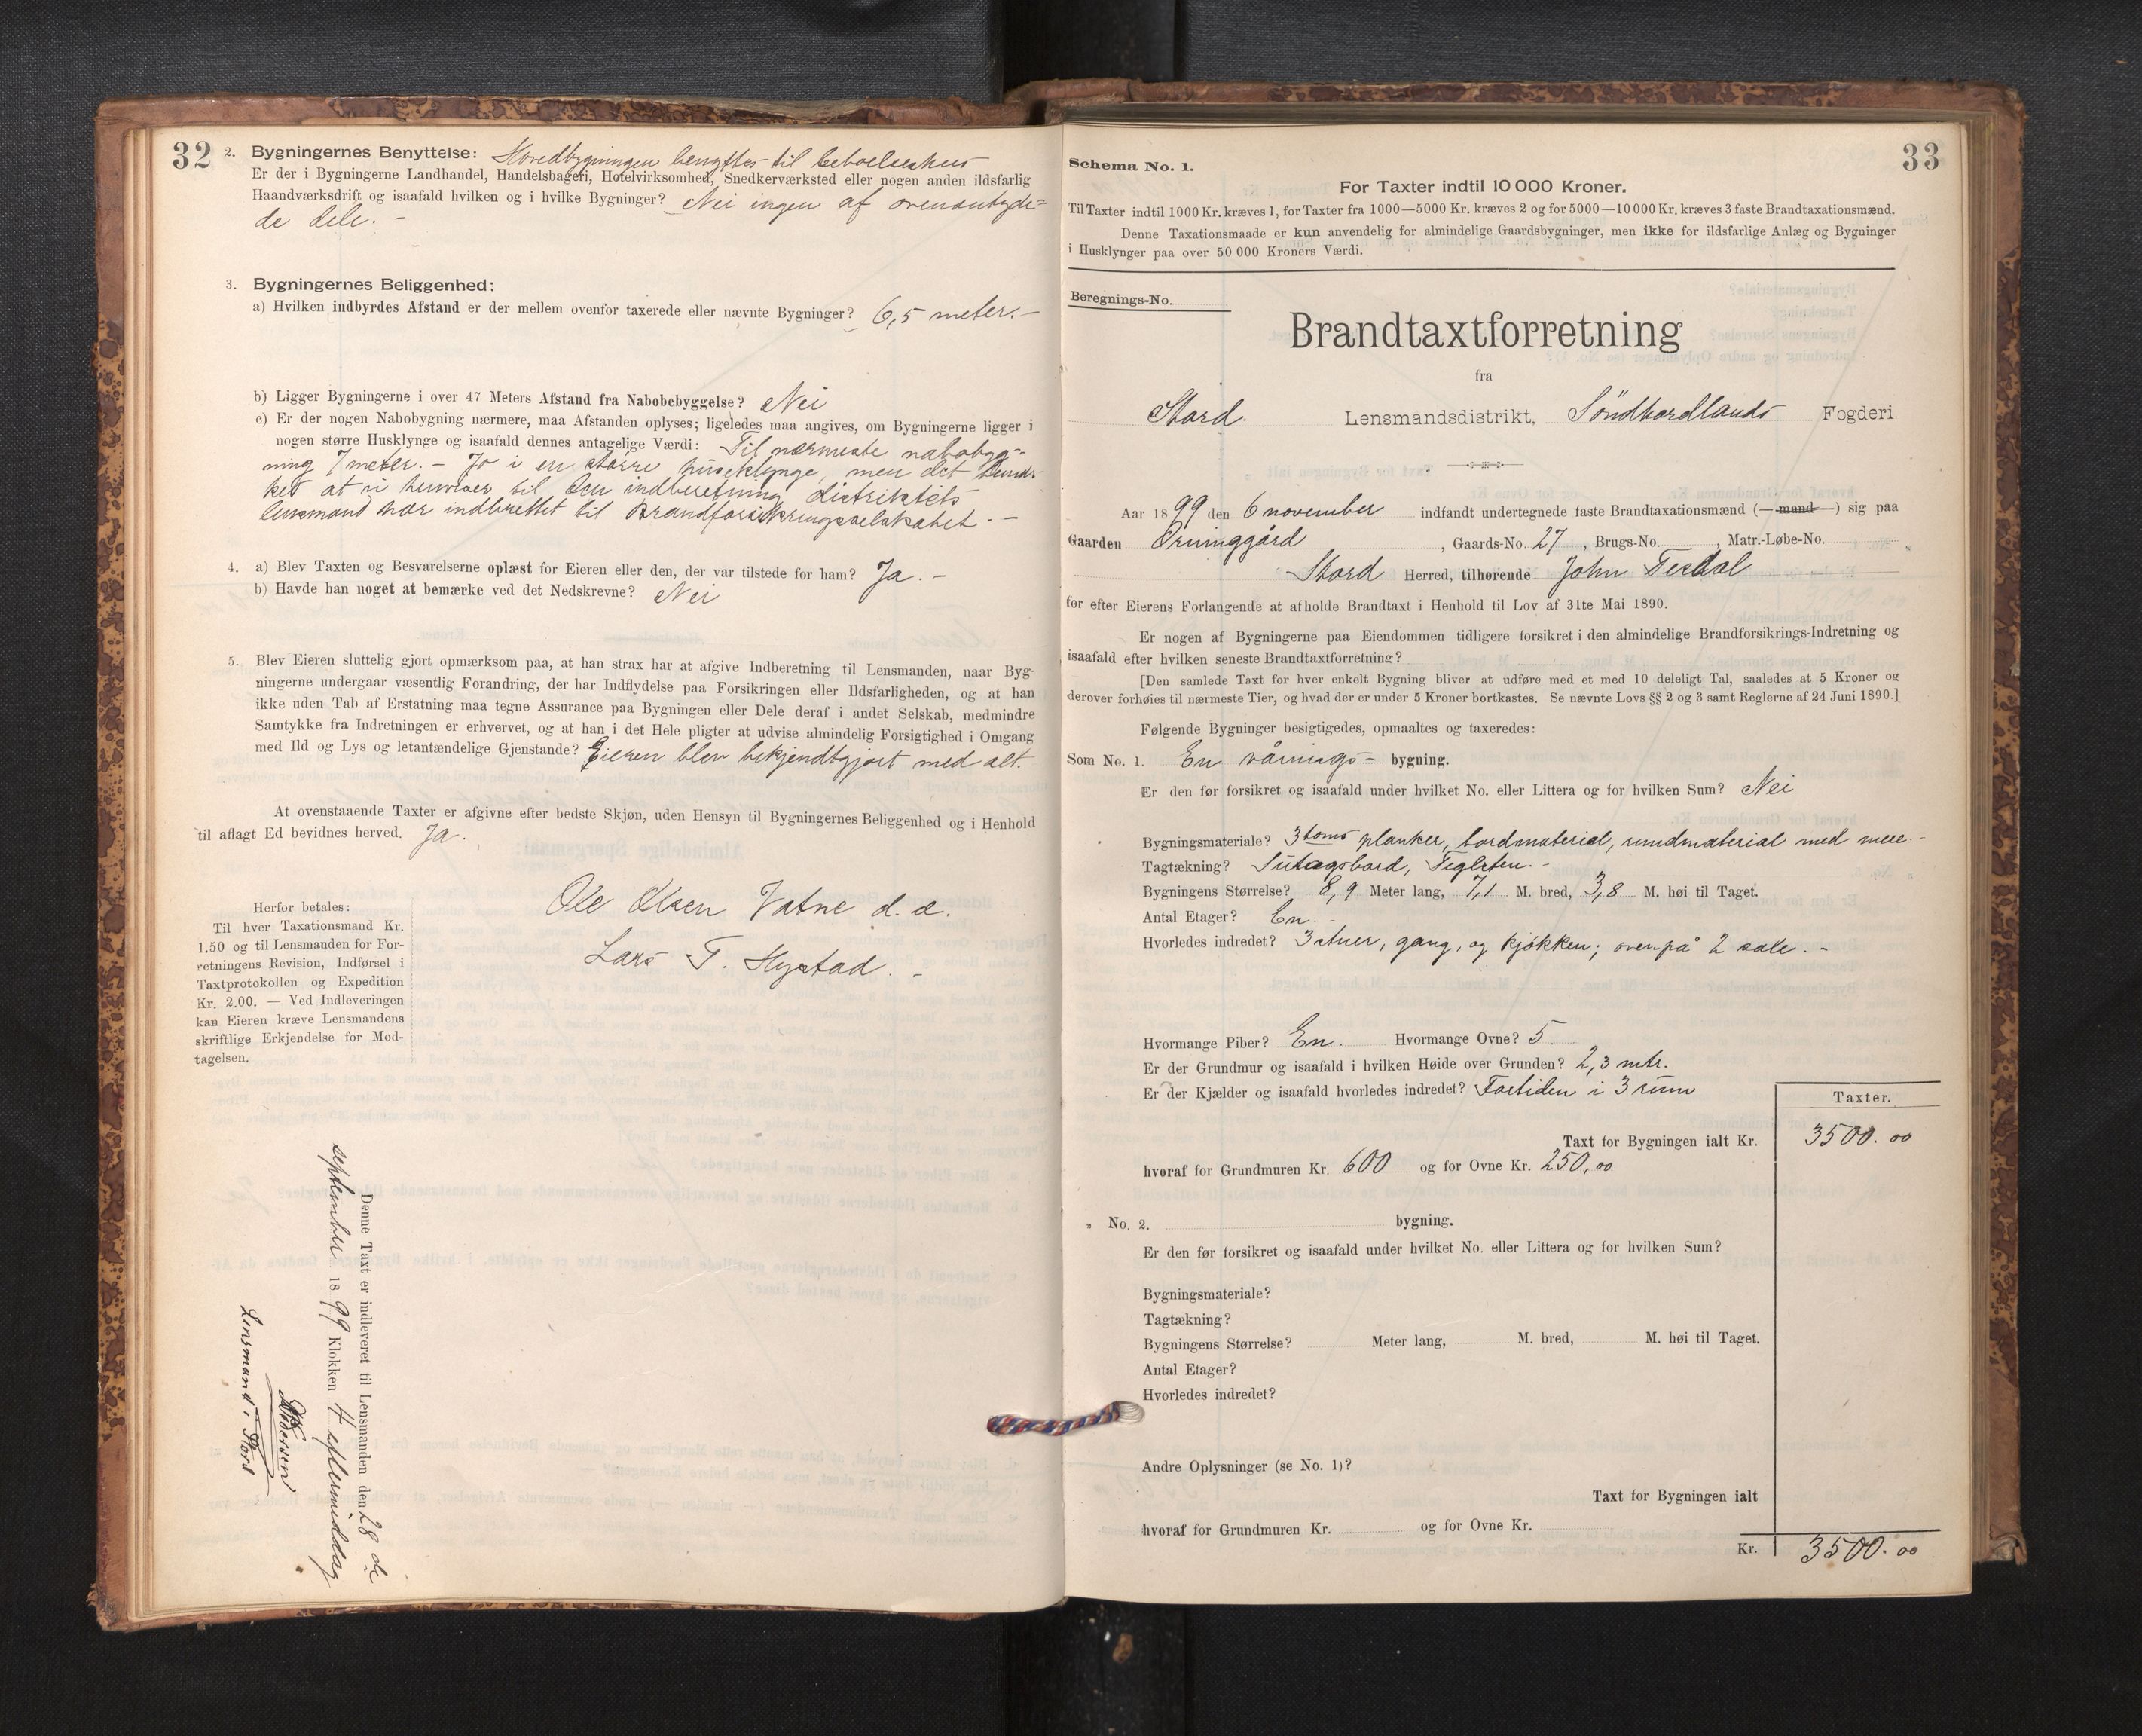 32
2. Bygningernes Benyttelse: Hovedbygningen benyttes til beboelseshus
Er der i Bygningerne Landhandel, Handelsbageri, Hotelvirksomhed, Snedkerværksted eller nogen anden ildsfarlig
Haandværksdrift og isaafald hvilken og i hvilke Bygninger? Nei ingen af ovenantyde=
de dele. -
3. Bygningernes Beliggenhed:
a) Hvilken indbyrdes Afstand er der mellem ovenfor taxerede eller nævnte Bygninger? 6,5 meter. -
b) Ligger Bygningerne i over 47 Meters Afstand fra Nabobebyggelse? Nei
c) Er der nogen Nabobygning nærmere, maa Afstanden oplyses; ligeledes maa angives, om Bygningerne ligger i
nogen større Husklynge og isaafald dennes antagelige Værdi: Til nærmeste nabobyg=
ning 7 meter. - Jo i en større huseklynge, men det
ket at vi henviser til den indberetning distriktets
lensmand har indberettet til Brandforsikringsselskabet. -
4. a) Blev Taxten og Besvarelserne oplæst for Eieren eller den, der var tilstede for ham? Ja. -
b) Havde han noget at bemærke ved det Nedskrevne? Nei
5. Blev Eieren sluttelig gjort opmærksom paa, at han strax har at afgive Indberetning til Lensmanden, naar Byg-
ningerne undergaar væsentlig Forandring, der har Indflydelse paa Forsikringen eller Ildsfarligheden, og at han
ikke uden Tab af Erstatning maa tegne Assurance paa Bygningen eller Dele deraf i andet Selskab, medmindre
Samtykke fra Indretningen er erhvervet, og at han i det Hele pligter at udvise almindelig Forsigtighed i Omgang
med Ild og Lys og letantændelige Gjenstande? Eieren blev bekjendtgjort med alt.
At ovenstaaende Taxter er afgivne efter bedste Skjøn, uden Hensyn til Bygningernes Beliggenhed og i Henhold
til aflagt Ed bevidnes herved. Ja.
Ole Olsen Vatne d. e.
Lars T. Hystad. -
Herfor betales:
Til hver Taxationsmand Kr.
1.50 og til Lensmanden for For-
retningens Revision, Indførsel i
Taxtprotokollen og Expedition
Kr. 2.00. — Ved Indleveringen
kan Eieren kræve Lensmandens
skriftlige Erkjendelse for Mod-
tagelsen.
Denne Taxt er indleveret til Lensmanden den 28 de
september 1899 Klokken 4 eftermiddag
Lensmand i Stord
33
Schema No. 1.
For Taxter indtil 10 000 Kroner.
Til Taxter indtil 1000 Kr. kræves 1, for Taxter fra 1000—5000 Kr. kræves 2 og for 5000—10 000 Kr. kræves 3 faste Brandtaxationsmænd.
Denne Taxationsmaade er kun anvendelig for almindelige Gaardsbygninger, men ikke for ildsfarlige Anlæg og Bygninger
i Husklynger paa over 50 000 Kroners Værdi.
Beregnings-No.
Brandtaxtforretning
fra
Stord Lensmandsdistrikt, Söndhordlands Fogderi.
Aar 1899 den 6 november indfandt undertegnede faste Brandtaxationsmænd (—mand—) sig paa
Gaarden , Gaards-No. 27, Brugs-No. , Matr.-Løbe-No.
Stord Herred, tilhørende John
for efter Eierens Forlangende at afholde Brandtaxt i Henhold til Lov af 31te Mai 1890.
Er nogen af Bygningerne paa Eiendommen tidligere forsikret i den almindelige Brandforsikrings-Indretning og
isaafald efter hvilken seneste Brandtaxtforretning?
[Den samlede Taxt for hver enkelt Bygning bliver at udføre med et med 10 deleligt Tal, saaledes at 5 Kroner og
derover forhøies til nærmeste Tier, og hvad der er under 5 Kroner bortkastes. Se nævnte Lovs §§ 2 og 3 samt Reglerne af 24 Juni 1890.]
Følgende Bygninger besigtigedes, opmaaltes og taxeredes:
Som No. 1. En vånings- bygning.
Er den før forsikret og isaafald under hvilket No. eller Littera og for hvilken Sum? Nei
Bygningsmateriale? 3toms planker, bordmaterial, rundmaterial med mere. -
Tagtækning? Sutagsbord, Teglsten. -
Bygningens Størrelse? 8,9 Meter lang, 7,1 M. bred, 3,8 M. høi til Taget.
Antal Etager? En. -
Hvorledes indredet? 3 stuer, gang, og kjøkken; ovenpå 2 sale. -
Hvormange Piber? En. Hvormange Ovne? 5
Er der Grundmur og isaafald i hvilken Høide over Grunden? 2,3 mtr.
Er der Kjælder og isaafald hvorledes indredet? i 3 rum
Taxter.
Taxt for Bygningen ialt Kr. 3500.00
hvoraf for Grundmuren Kr. 600 og for Ovne Kr. 250,00
" No. 2. bygning.
Er den før forsikret og isaafald under hvilket No. eller Littera og for hvilken Sum?
Bygningsmateriale?
Tagtækning?
Bygningens Størrelse? Meter lang, M. bred, M. høi til Taget.
Antal Etager?
Hvorledes indredet?
Andre Oplysninger (se No. 1)?
Taxt for Bygningen ialt
hvoraf for Grundmuren Kr. og for Ovne Kr.
Kr. 3500.00